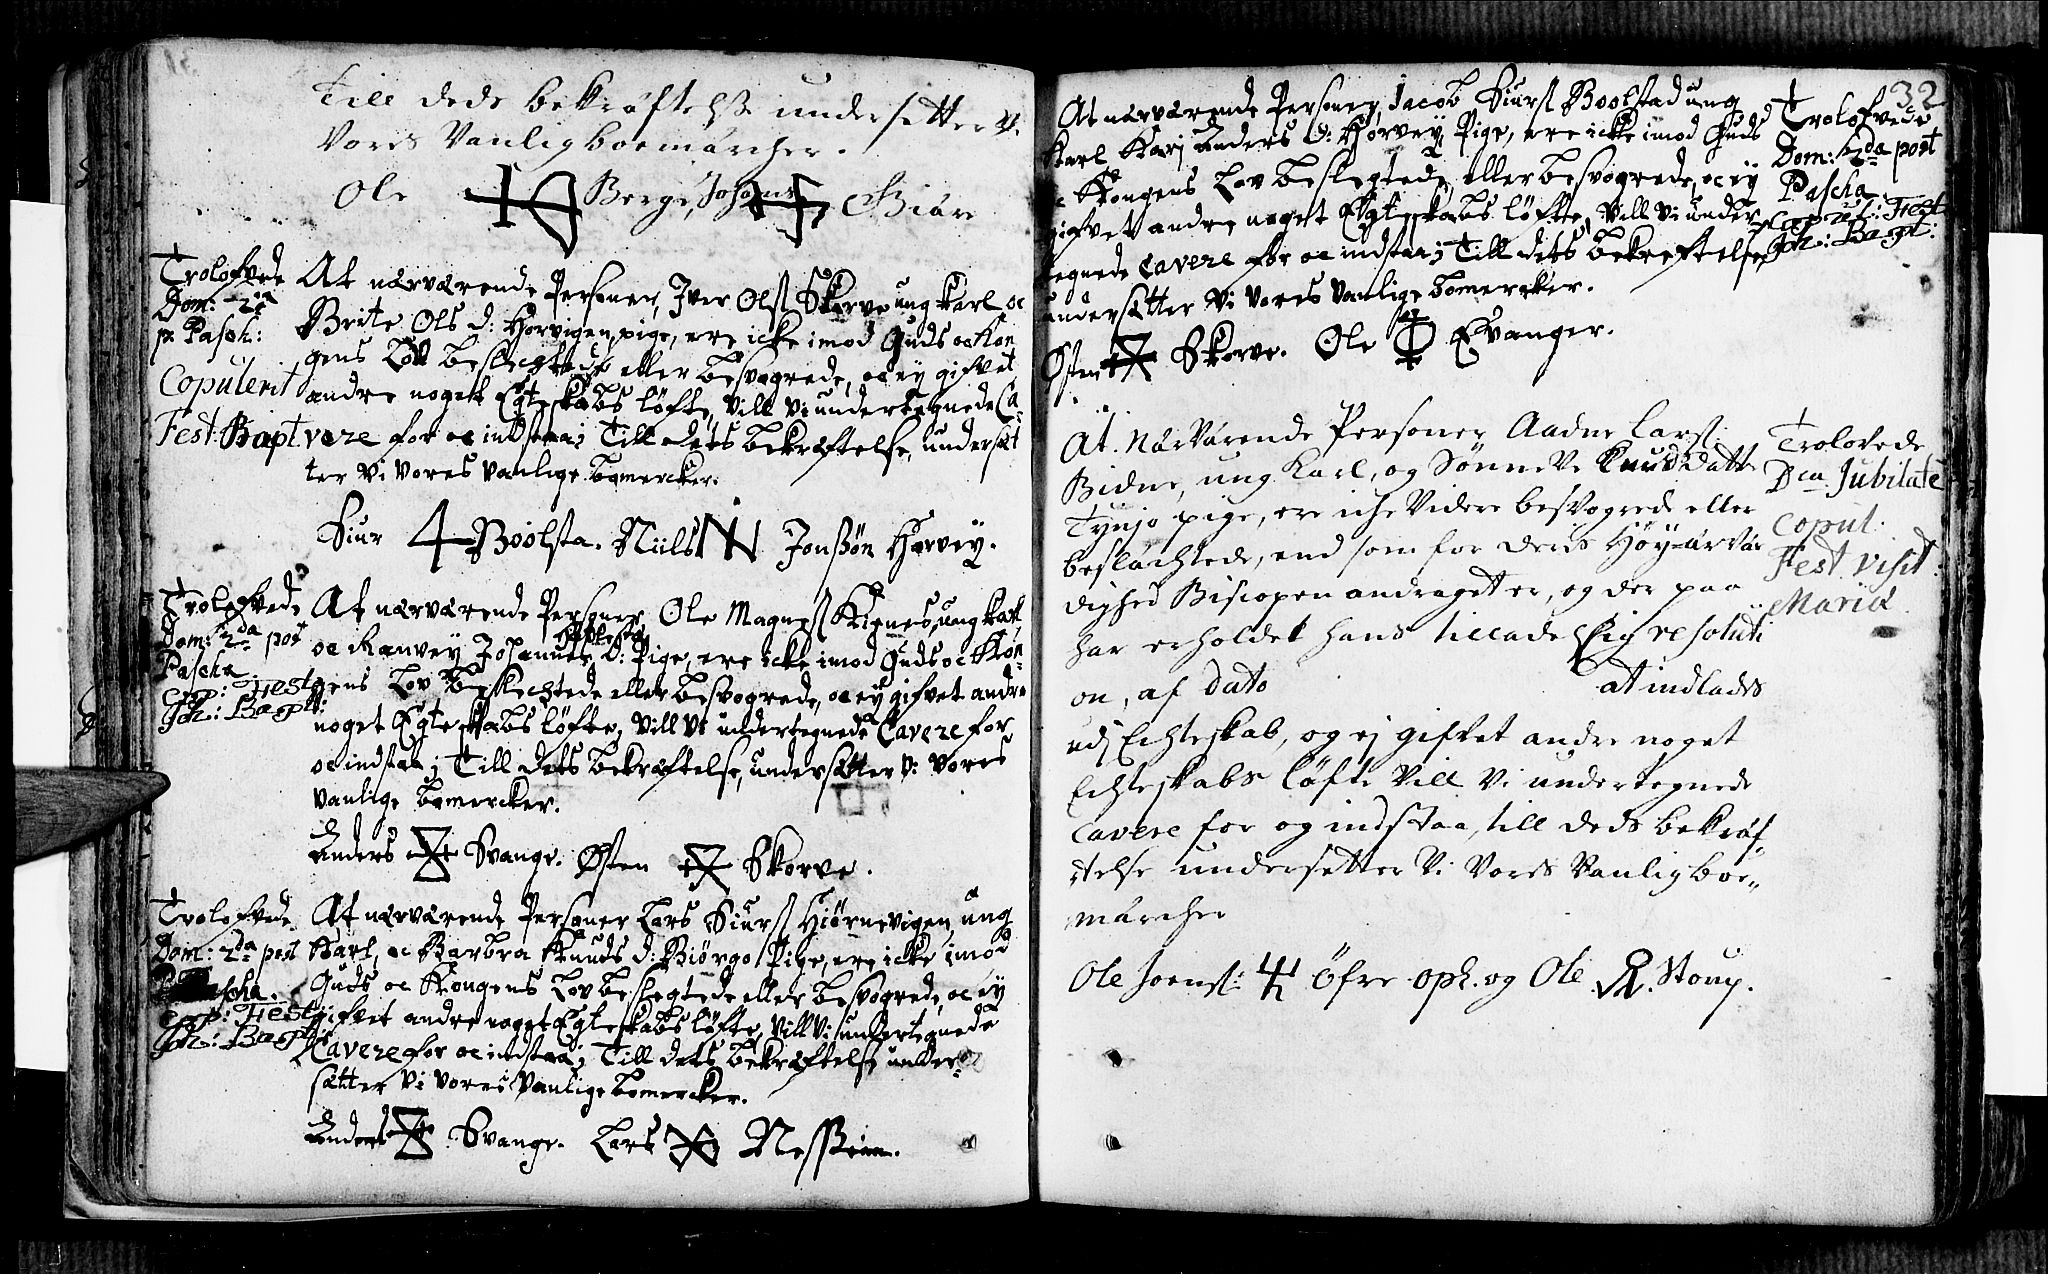 Till deds bekräftelse undersetter vi
Vores Vanlig boemärcher.
Ole Berge, Johans Giäre
Trolofvede
Dom: 2da
p. Pasch:
Copulerit
Fest: Bapt.
At nærværende Personer, Iver Ols. Skorve ung Karl oc
Brite Ols d: Horvigen, pige, ere icke imod Guds oc Kon
gens Lov beslechtede eller besvogrede, oc ey gifvet
andre noget Egteskabs løfte, Vill Vi undertegnede Ca-
vere for oc indstaa; Till dets bekræftelse, undersæt
ter Vi Vores Vanlige bomercker.
Siur Boolsta. Niils Jonssøn Harvey.
Trolofvede
Dom: 2da post
Pascha
Cop: Fest:
Joh: Bapt:
At nærværende Personer, Ole Magnes. ung Karl
oc Ranvey Johannes D: Pige, ere icke imod Guds oc Kon-
gens Lov beslechtede eller besvogrede, oc ey gifvet andre
noget Egteskabs løfte, Vill Vi undertegnede Cavere for
oc indstaa; Till dets bekræftelse, undersætter Vi Vores
Vanlige bomercker.
Anders Svange. Østen Skorve.
Trolofvede
Dom: 2da post
Pascha.
Cop: Fest:
Joh: Bapt:
At nærværende Personer Lars Siurs. Hiørnevigen, ung
Karl, oc Barbra Knuds d: Biørgo Pige, ere icke imod
Guds oc Kongens Lov beslegtede eller besvogrede, oc ey
gifvet andre noget Egteskabs løfte, Vill Vi undertegnede
Cavere for oc indstaa; Till dets bekræftelse under-
sætter Vi Vores Vanlige bomercker.
Anders Svange. Lars Nessheim.
32
At nærværende Personer, Jacob Siurs. Boolstad ung
Karl Kari Anders D: Horvey Pige, ere icke imod Guds
oc Kongens Lov beslegtede, eller besvogrede, oc ey
gifvet andre noget Egteskabs løfte, Vill Vi under-
tegnede Cavere for oc indstaa; Till dets bekreftelse
undersætter Vi Vores Vanlige bomercker.
Østen Skorve. Ole Evanger.
Trolofvede
Dom: 2da post
Pascha
Copul: Fest
Joh: Bapt:
At Närvärende Personer Aadne Lars.
Bidne, ung Karl, og Sønneve Knudsdatt
Tynjo pige, ere iche Videre besvogrede eller
beslächtede, end som for deris Høy-ärvär
dighed Biscopen andraget er, og der paa
har erholdet hans tilladelig resoluti
on, af dato at indlades
udj Echteskab, og ej gifvet andre noget
Echteskabs løfte Vill Vi undertegnede
cavere for og indstaa, till deds bekräf-
telse undersetter Vi Vores Vanlig boe-
märcher
Ole Joens: Öfre oph. og Ole Stoup.
Trolofvede
Dca Jubilate
Copul:
Fest. Visit:
Mariæ.